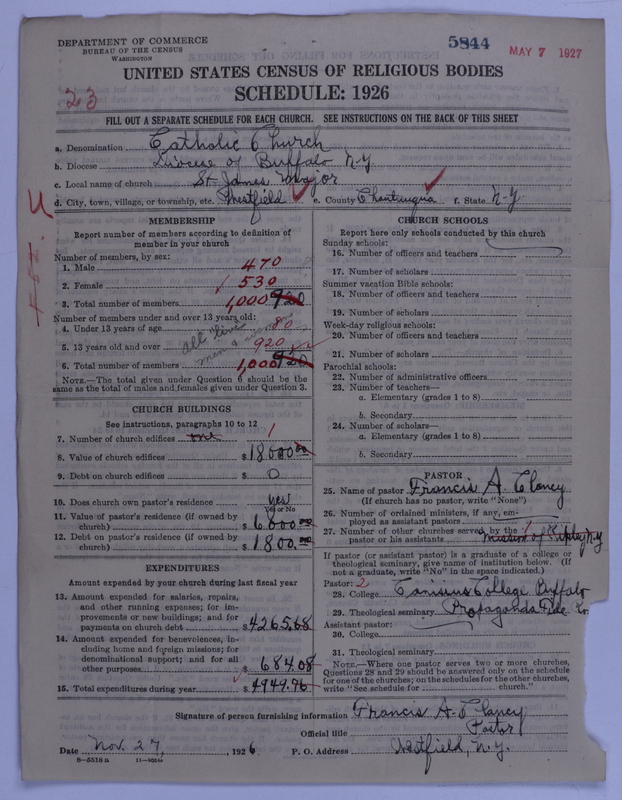 DEPARTMENT OF COMMERCE
BUREAU OF THE CENSUS
WASHINGTON
5844
MAY 7 1927
UNITED STATES CENSUS OF RELIGIOUS BODIES
SCHEDULE: 1926
23
FILL OUT A SEPARATE SCHEDULE FOR EACH CHURCH. SEE INSTRUCTIONS ON THE BACK OF THIS SHEET
a. Denomination Catholic Church
b. Diocese Diocese of Buffalo N.Y.
c. Local name of church St. James Major
d. City, town, village, or township, etc. Westfield e. County Chautauqua f. State N.Y.
MEMBERSHIP
Report number of members according to definition of
member in your church
Number of members, by sex:
1. Male 470
2. Female 530
3. Total number of members 1,000 920
Number of members under and over 13 years old:
4. Under 13 years of age 80
5. 13 years old and over 920
6. Total number of members 1,000 920
NOTE.—The total given under Question 6 should be the
same as the total of males and females given under Question 3.
CHURCH BUILDINGS
See instructions, paragraphs 10 to 12
7. Number of church edifices one 1
8. Value of church edifices $ 18000.00
9. Debt on church edifices $ 0
10. Does church own pastor's residence yes
Yes or No
11. Value of pastor's residence (if owned by
church) $ 6000.00
12. Debt on pastor's residence (if owned by
church) $ 1800.00
EXPENDITURES
Amount expended by your church during last fiscal year
13. Amount expended for salaries, repairs,
and other running expenses; for im-
provements or new buildings; and for
payments on church debt $ 4265.68
14. Amount expended for benevolences, in-
cluding home and foreign missions; for
denominational support; and for all
other purposes $ 684.08
15. Total expenditures during year $ 4949.76
CHURCH SCHOOLS
Report here only schools conducted by this church
Sunday schools:
16. Number of officers and teachers
17. Number of scholars
Summer vacation Bible schools:
18. Number of officers and teachers
19. Number of scholars
Week-day religious schools:
20. Number of officers and teachers
21. Number of scholars
Parochial schools:
22. Number of administrative officers
23. Number of teachers—
a. Elementary (grades 1 to 8)
b. Secondary
24. Number of scholars—
a. Elementary (grades 1 to 8)
b. Secondary
PASTOR
25. Name of pastor Francis A. Clancy
(If church has no pastor, write "None")
26. Number of ordained ministers, if any, em-
ployed as assistant pastors
27. Number of other churches served by the 1
pastor or his assistants Mission of Ripley N.Y.
If pastor (or assistant pastor) is a graduate of a college or
theological seminary, give name of institution below. (If
not a graduate, write "No" in the space indicated.)
Pastor: 2
28. College Canisius College Buffalo
29. Theological seminary Propaganda Fide
Assistant pastor:
30. College
31. Theological seminary
NOTE.—Where one pastor serves two or more churches,
Questions 28 and 29 should be answered only on the schedule
for one of the churches; on the schedules for the other churches,
write "See schedule for church."
Signature of person furnishing information Francis A. Clancy
Official title Pastor
Date Nov. 27, 1926 P. O. Address Westfield, N.Y.
8—5518a 11—9034a